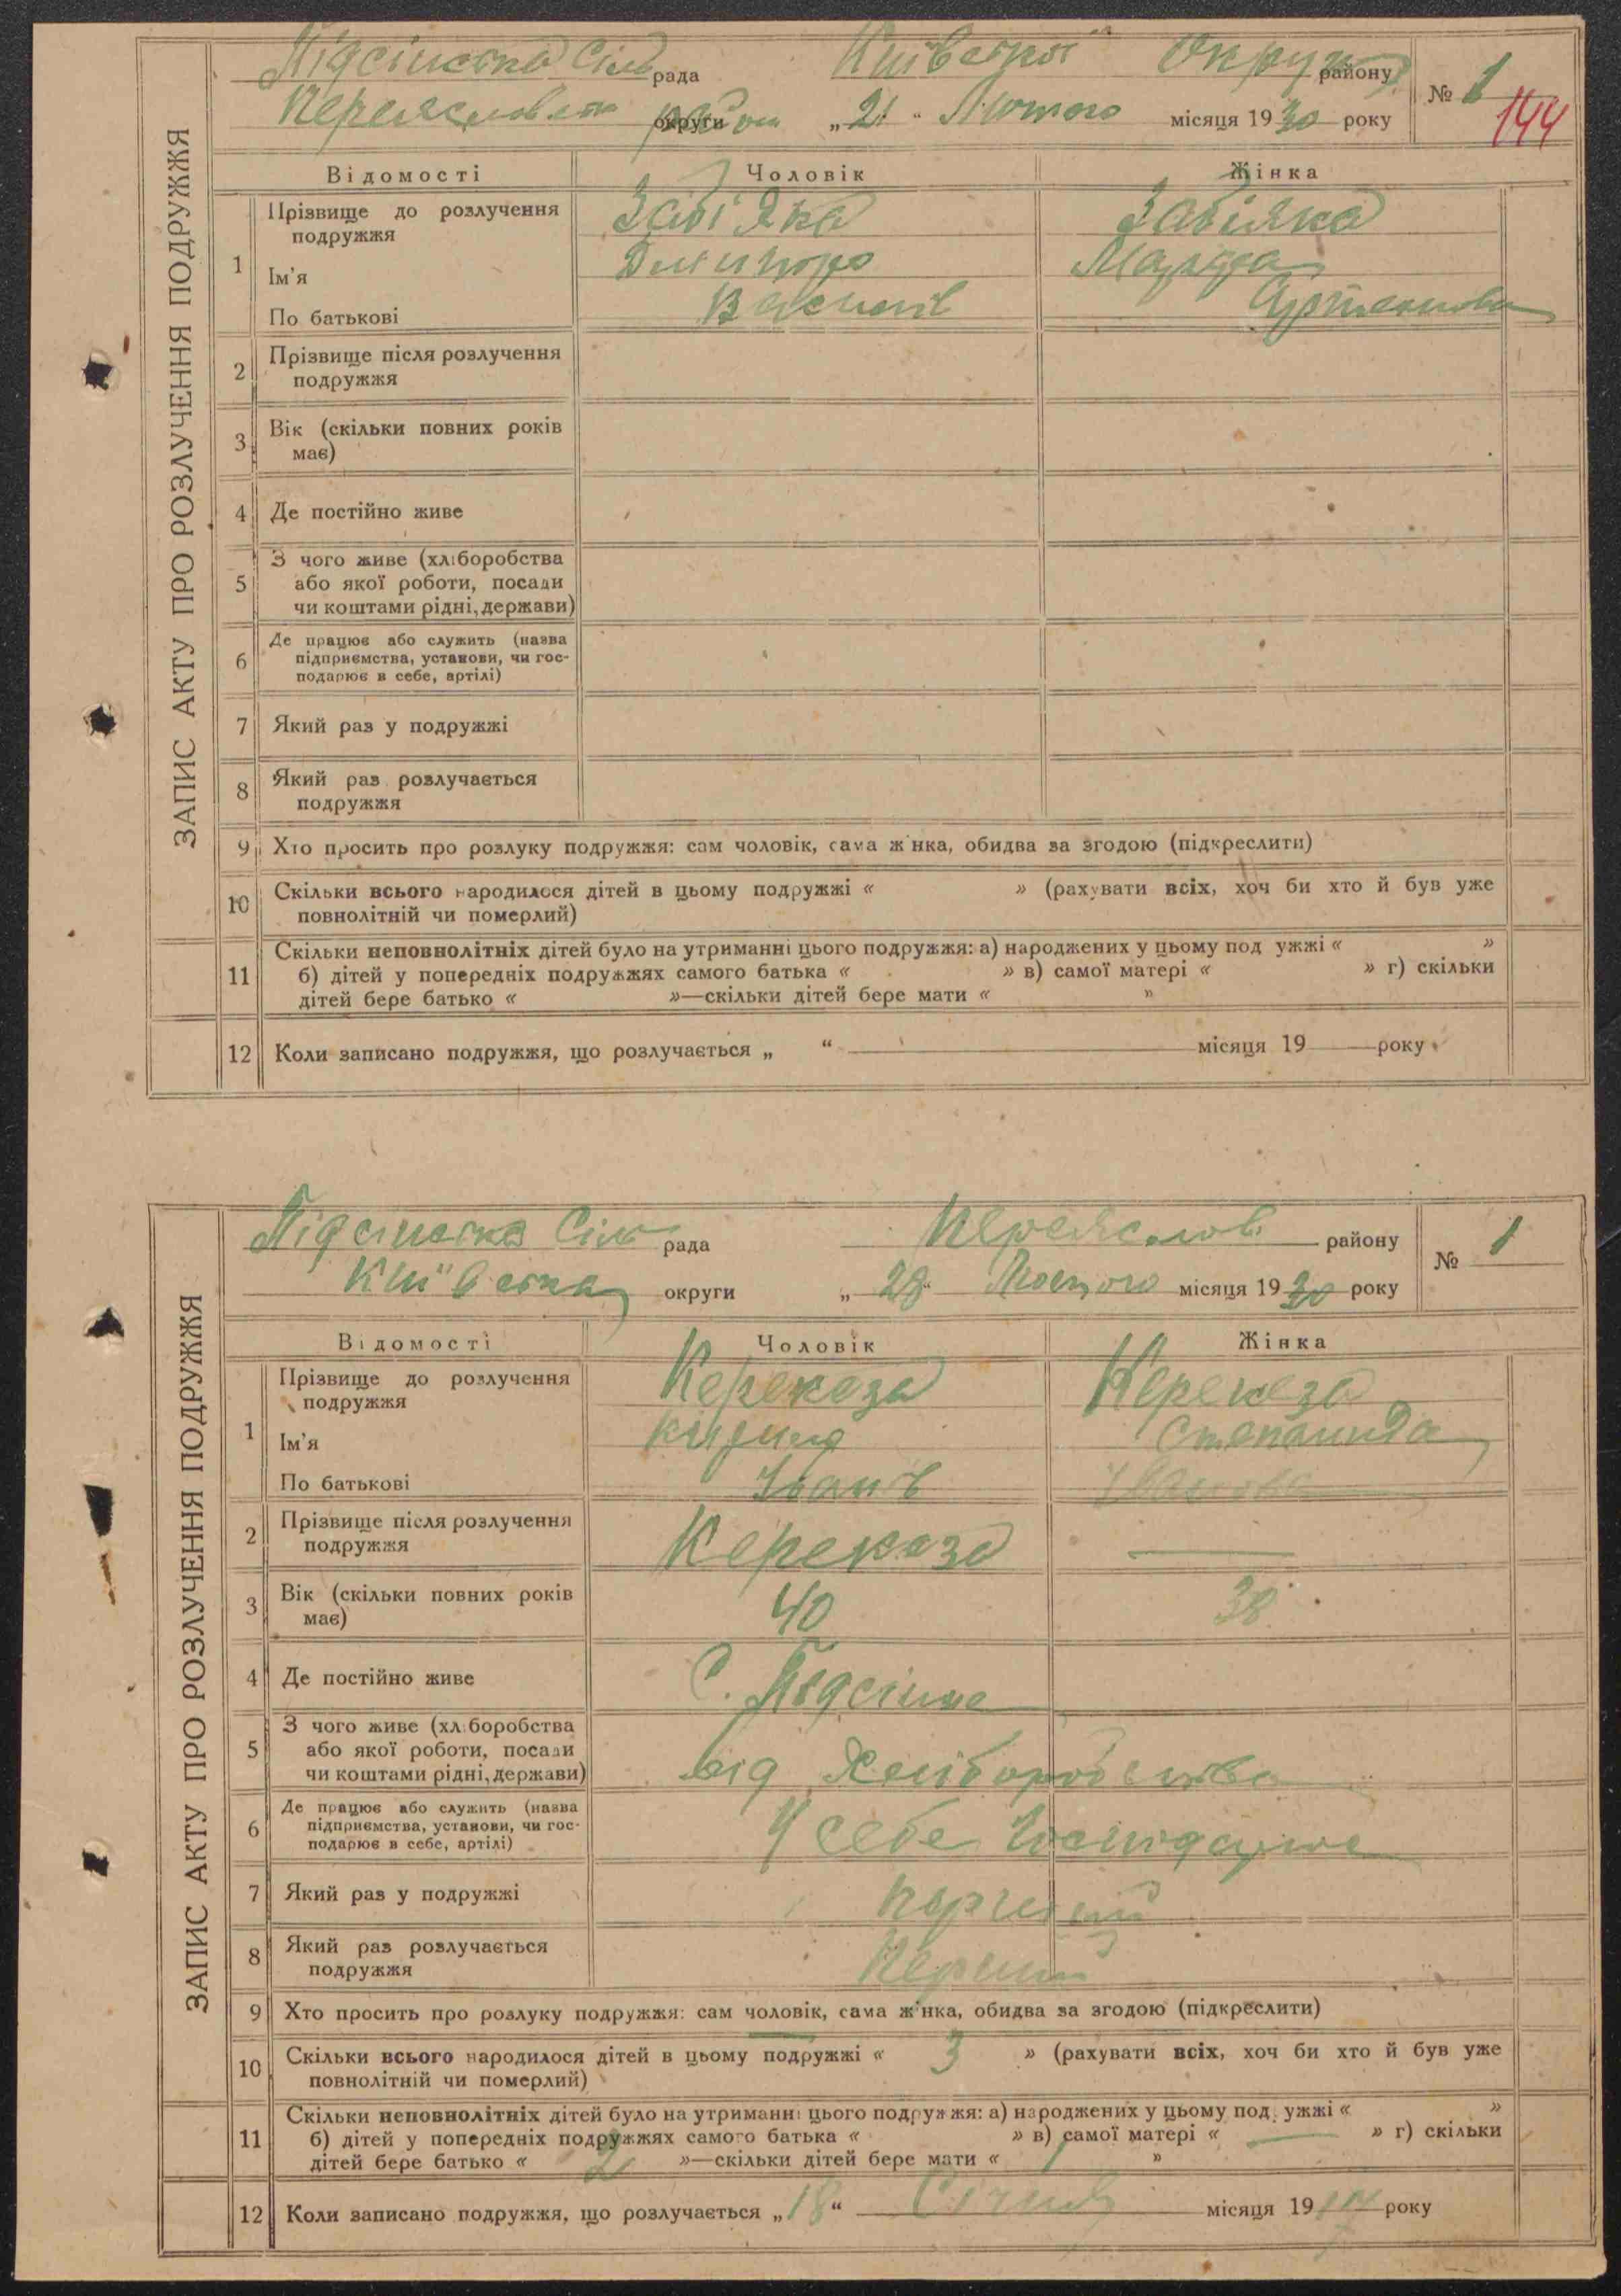 ЗАПИС АКТУ ПРО РОЗЛУЧЕННЯ ПОДРУЖЖЯ
Підсінська Сіль рада Київської Округи району № 1
округи „21“ Лютого місяця 1930 року 144
Відомості Чоловік Жінка
1 Прізвище до розлучення подружжя Забіяка Забіяка
Ім'я Дмитро
По батькові Василів
2 Прізвище після розлучення
подружжя
3 Вік (скільки повних років
має)
4 Де постійно живе
5 З чого живе (хліборобства
або якої роботи, посади
чи коштами рідні, держави)
6 Де працює або служить (назва
підприємства, установи, чи гос-
подарює в себе, артілі)
7 Який раз у подружжі
8 Який раз розлучається
подружжя
9 Хто просить про розлуку подружжя: сам чоловік, сама жінка, обидва за згодою (підкреслити)
10 Скільки всього народилося дітей в цьому подружжі « » (рахувати всіх, хоч би хто й був уже
повнолітній чи померлий)
11 Скільки неповнолітніх дітей було на утриманні цього подружжя: а) народжених у цьому под ужжі « »
б) дітей у попередніх подружжях самого батька « » в) самої матері « » г) скільки
дітей бере батько « »—скільки дітей бере мати « »
12 Коли записано подружжя, що розлучається „ “ місяця 19 року
ЗАПИС АКТУ ПРО РОЗЛУЧЕННЯ ПОДРУЖЖЯ
Підсінська Сіль рада Переяслов району № 1
Київська округи „28“ Лютого місяця 1930 року
Відомості Чоловік Жінка
1 Прізвище до розлучення
подружжя Керекеза Керекеза
Ім'я Кирило Степанида
По батькові Іванів Іванова
2 Прізвище після розлучення
подружжя Керекеза —
3 Вік (скільки повних років
має) 40 38
4 Де постійно живе С. Підсінне
5 З чого живе (хліборобства
або якої роботи, посади
чи коштами рідні, держави) від Хліборобства
6 Де працює або служить (назва
підприємства, установи, чи гос-
подарює в себе, артілі) У себе Господарює
7 Який раз у подружжі Перший
8 Який раз розлучається
подружжя Перший
9 Хто просить про розлуку подружжя: сам чоловік, сама жінка, обидва за згодою (підкреслити)
10 Скільки всього народилося дітей в цьому подружжі « 3 » (рахувати всіх, хоч би хто й був уже
повнолітній чи померлий)
11 Скільки неповнолітніх дітей було на утриманні цього подружжя: а) народжених у цьому под ужжі « »
б) дітей у попередніх подружжях самого батька « » в) самої матері « — » г) скільки
дітей бере батько « 2 »—скільки дітей бере мати « 1 »
12 Коли записано подружжя, що розлучається „18“ Січня місяця 19 року